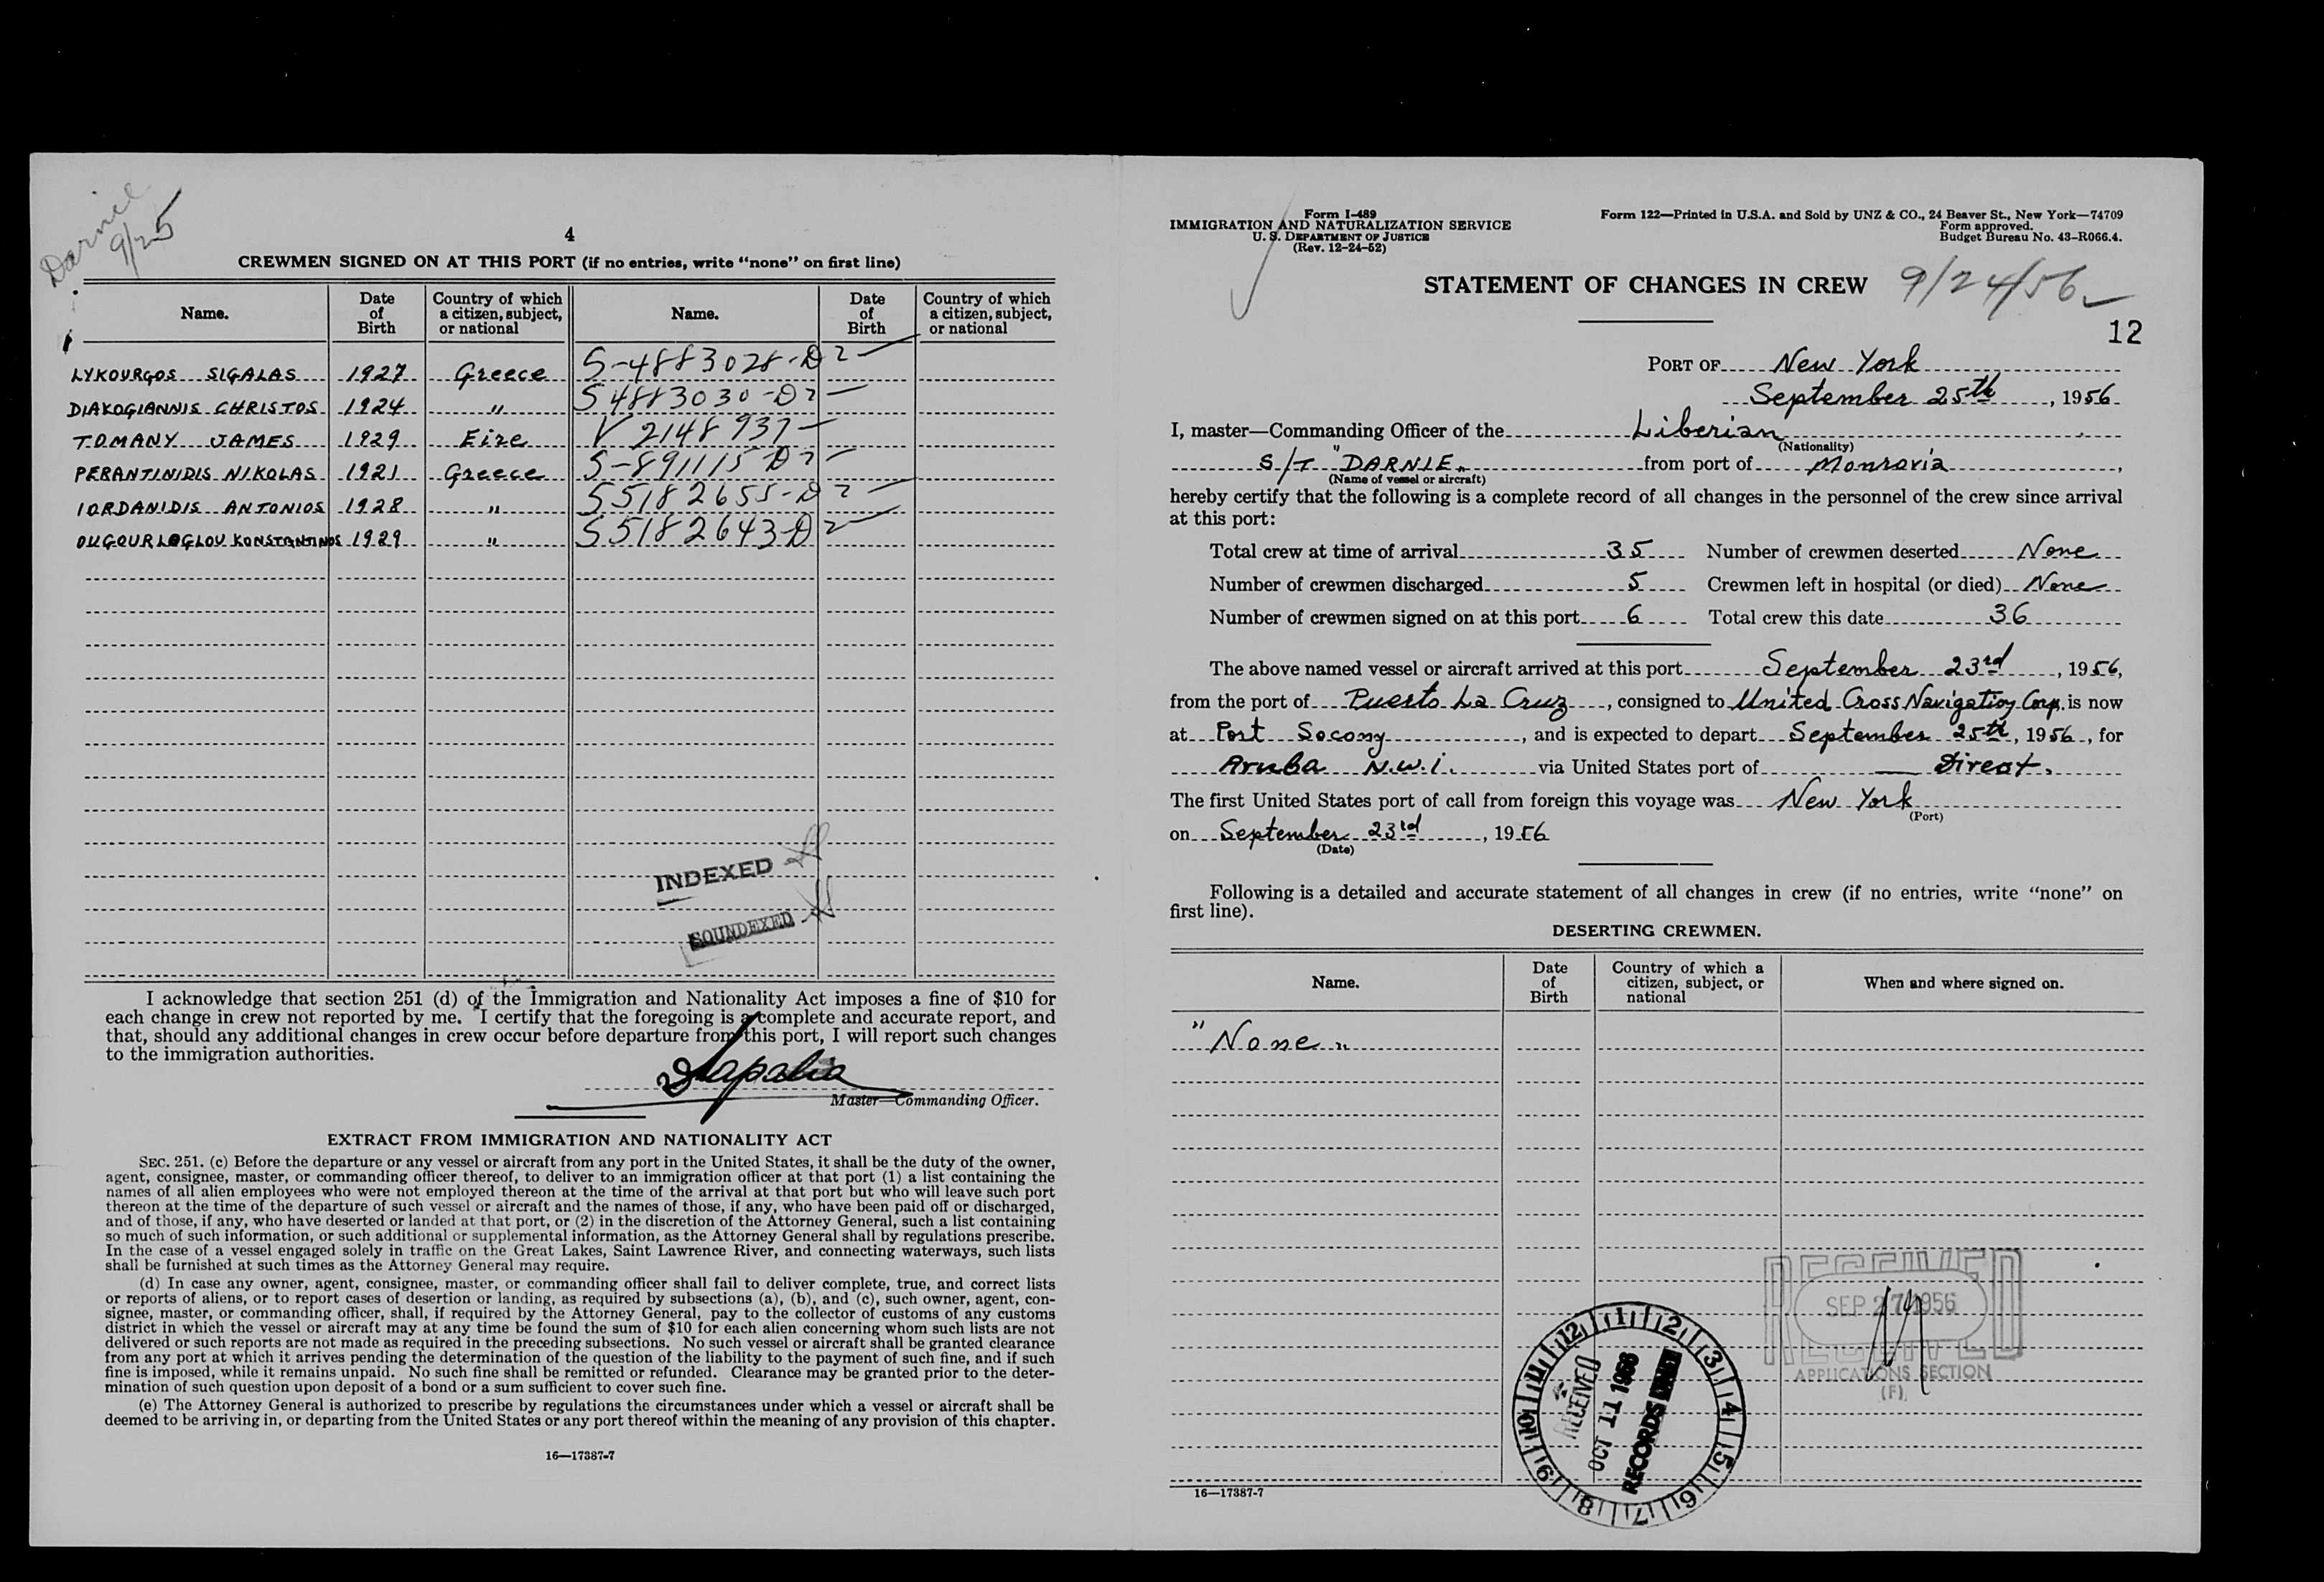 Darnie
9/25
4
CREWMEN SIGNED ON AT THIS PORT (if no entries, write “none” on first line)
Name. Date of Birth Country of which a citizen, subject, or national Name. Date of Birth Country of which a citizen, subject, or national
LYKOURGOS SIGALAS 1927 Greece S-4883028-D2
DIAKOGIANNIS CHRISTOS 1924 " S4883030-D2
TOMANY JAMES 1929 Eire V 2148937
PERANTINIDIS NIKOLAS 1921 Greece S-891115 D2
IORDANIDIS ANTONIOS 1928 " S5182655-D2
OUGOURLOGLOU KONSTANTINOS 1929 " S5182643-D2
INDEXED
SOUNDEXED
I acknowledge that section 251 (d) of the Immigration and Nationality Act imposes a fine of $10 for
each change in crew not reported by me. I certify that the foregoing is a complete and accurate report, and
that, should any additional changes in crew occur before departure from this port, I will report such changes
to the immigration authorities.
Master—Commanding Officer.
EXTRACT FROM IMMIGRATION AND NATIONALITY ACT
SEC. 251. (c) Before the departure or any vessel or aircraft from any port in the United States, it shall be the duty of the owner,
agent, consignee, master, or commanding officer thereof, to deliver to an immigration officer at that port (1) a list containing the
names of all alien employees who were not employed thereon at the time of the arrival at that port but who will leave such port
thereon at the time of the departure of such vessel or aircraft and the names of those, if any, who have been paid off or discharged,
and of those, if any, who have deserted or landed at that port, or (2) in the discretion of the Attorney General, such a list containing
so much of such information, or such additional or supplemental information, as the Attorney General shall by regulations prescribe.
In the case of a vessel engaged solely in traffic on the Great Lakes, Saint Lawrence River, and connecting waterways, such lists
shall be furnished at such times as the Attorney General may require.
(d) In case any owner, agent, consignee, master, or commanding officer shall fail to deliver complete, true, and correct lists
or reports of aliens, or to report cases of desertion or landing, as required by subsections (a), (b), and (c), such owner, agent, con-
signee, master, or commanding officer, shall, if required by the Attorney General, pay to the collector of customs of any customs
district in which the vessel or aircraft may at any time be found the sum of $10 for each alien concerning whom such lists are not
delivered or such reports are not made as required in the preceding subsections. No such vessel or aircraft shall be granted clearance
from any port at which it arrives pending the determination of the question of the liability to the payment of such fine, and if such
fine is imposed, while it remains unpaid. No such fine shall be remitted or refunded. Clearance may be granted prior to the deter-
mination of such question upon deposit of a bond or a sum sufficient to cover such fine.
(e) The Attorney General is authorized to prescribe by regulations the circumstances under which a vessel or aircraft shall be
deemed to be arriving in, or departing from the United States or any port thereof within the meaning of any provision of this chapter.
16—17387-7
Form I-489
IMMIGRATION AND NATURALIZATION SERVICE
U. S. DEPARTMENT OF JUSTICE
(Rev. 12-24-52)
Form 122—Printed in U.S.A. and Sold by UNZ & CO., 24 Beaver St., New York—74709
Form approved.
Budget Bureau No. 43-R066.4.
STATEMENT OF CHANGES IN CREW 9/24/56
12
PORT OF New York
September 25th, 1956
I, master—Commanding Officer of the Liberian
(Nationality)
S/T "DARNIE" from port of Monrovia,
(Name of vessel or aircraft)
hereby certify that the following is a complete record of all changes in the personnel of the crew since arrival
at this port:
Total crew at time of arrival 35 Number of crewmen deserted None
Number of crewmen discharged 5 Crewmen left in hospital (or died) None
Number of crewmen signed on at this port 6 Total crew this date 36
The above named vessel or aircraft arrived at this port September 23rd, 1956,
from the port of Puerto La Cruz, consigned to United Cross Navigation Corp. is now
at Port Socony, and is expected to depart September 25th, 1956, for
Aruba N.W.i. via United States port of — Direct.
The first United States port of call from foreign this voyage was New York
(Port)
on September 23rd, 1956
(Date)
Following is a detailed and accurate statement of all changes in crew (if no entries, write “none” on
first line).
DESERTING CREWMEN.
Name. Date of Birth Country of which a citizen, subject, or national When and where signed on.
"None"
RECEIVED
SEP 27 1956
APPLICATIONS SECTION
(F)
12 1 2 3 4 5 6 7 8 9 10 11
RECEIVED
OCT 11 1956
RECORDS
16—17387-7